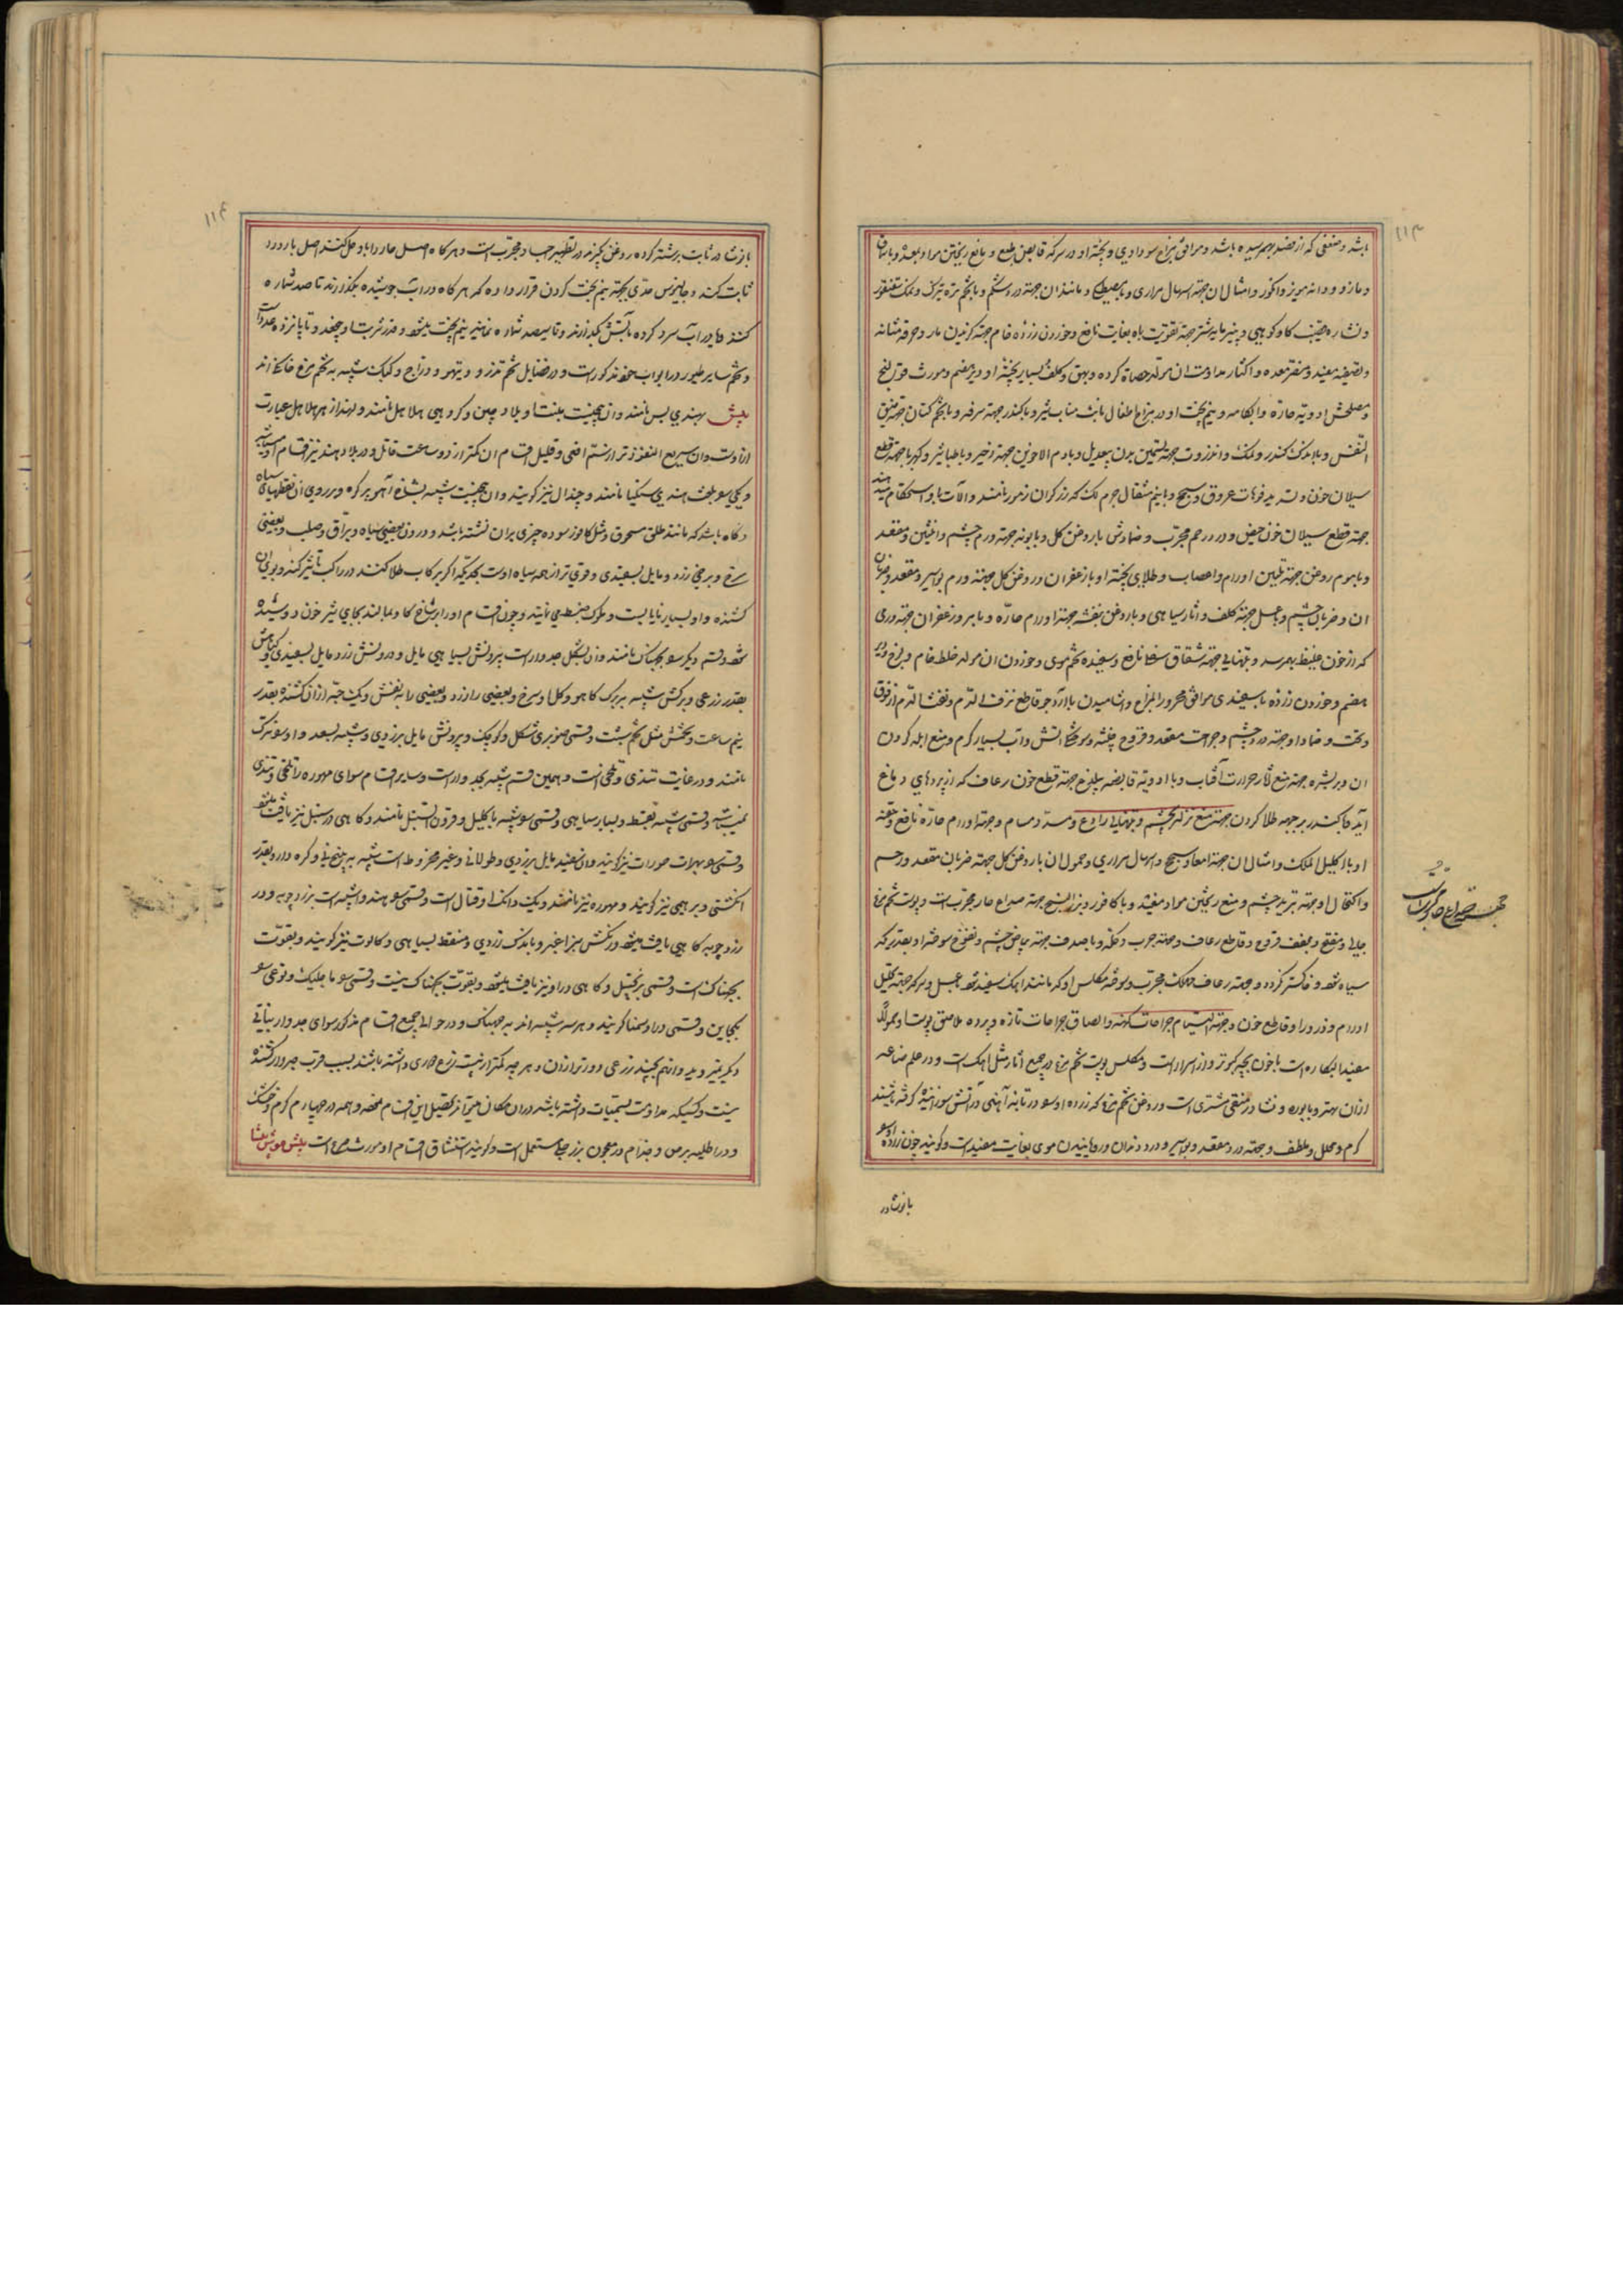 ۱۱۳
باشد و ضعفی که از فصد بهم رسیده باشد و موافق مزاج سوداوی و پخته او در سرکه قابض طبع و مانع ریختن مواد بمعده و با سماق
و مازو و دانه مویز و انگور و امثال ان جهة اسهال مراری و با مصطکی و مانند ان جهة درد شکم و با تخم تره تیزک و نمک سقنقور
و قضیب کاو کوهی و پنیر مایه شتر جهة تقویت باه بغایت نافع و خوردن زرده خام جهة کزیدن مار و حرقه مثانه
و تصفیه مفید و مضر معده و اکثار مداومت ان مولد حصاة کرده و بهق و کلف و بسیار پخته او دیر هضم و مورث قولنج
و مصلحش ادویه حاره و ابکامه و نیم پخت او در مزاج اطفال نایب مناب شیر و با کندر جهة سرفه و با تخم کتان جهة ضیق
النفس و با اندک کندر و نمک و انزروت جهة تسمین بدن بیعدیل و با دم الاخوین جهة زحیر و با طباشیر و کهربا جهة قطع
سیلان خون و تسدید فوهات عروق و سحج و با نیم مثقال جرم لک که زرکران زمور نامند و الات را باو استحکام میدهند
جهة قطع سیلان خون حیض و درد رحم مجرب و ضمادش با روغن کل و بابونه جهة ورم چشم و انثیین و مقعد
و با موم روغن جهة تلیین اورام و اعصاب و طلای پخته او با زعفران و روغن کل جهة ورم بواسیر و مقعد و ضربان
ان و ضربان چشم و با عسل جهة کلف و اثار سیاهی و با روغن بنفشه جهة اورام حاره و با مر و زعفران جهة ورمی
که از خون غلیظ بهم رسد و بتنهایی جهة شقاق نافع و سفیده تخم موی و خوردن ان مولد خلط خام و لزج و دیر
هضم و خوردن زرده با سفیدی موافق محرور المزاج و اشامیدن با ارد جو قاطع نزف الدم و نفث الدم از فوق
و تحت و ضماد او جهة درد چشم و جراحت مقعد و قروح خبیثه و سوختکی اتش و اب بسیار کرم و منع ابله کردن
ان و بر بشره جهة منع اثر حرارت آفتاب و با ادویه قابضه جهة قطع خون رعاف که از پردهای دماغ
آید و با کندر بر جبهه طلا کردن جهة منع نزله بچشم و بتنهایی رادع و مسدد مسام و جهة اورام حاره نافع و حقنه
او با اکلیل الملک و امثال ان جهة امعا و سحج و اسهال مراری و حمول ان با روغن کل جهة ضربان مقعد و رحم
و اکتحال او جهة تبرید چشم و منع ریختن مواد مفید و با کافور و بزر البنج جهة صداع حار مجرب است و پوست تخم مرغ
جالی و مفتح و مجفف قروح و قاطع رعاف و جهة جرب و حکه و با صدف جهة بیاض چشم و نفوخ سوخته او بقدری که
سیاه شود و خاکستر نکردد و جهة رعاف مهلک مجرب و سوخته مکلس او که مانند اهک سفید شود با عسل و سرکه جهة تحلیل
اورام و ذرور او قاطع خون و جهة التیام جراحات کهنه و الصاق جراحات تازه و پرده ملاصق پوست او حمولا
معید البکاره است با خون بچه کبوتر و از اسرار است و مکلس پوست تخم مرغ در جمیع اثار مثل اهک است و در علم صناعه
ازان بهتر و با بوره و نشادر منقی مشتری است و روغن تخم مرغ که زرده او را در تابه آهنی در آتش سوزانیده کرفته باشند
کرم و محلل و ملطف و جهة درد مقعد و بواسیر و درد دندان و رویانیدن موی بغایت مفید است و کویند چون زرده او را
بانوشادر
جهة صداع حار مجرب است
۱۱۴
بانوشادر ثابت برشته کرده روغن بکیرند در تطهیر اجساد مجرب است و هرکاه اصل حار را باو حل کنند اصل بارد را
ثابت کند و جالینوس حدی بجهة نیم پخت کردن قرار داده که هر کاه در اب جوشیده بکذارند تا صد شماره
کنند و یا در آب سرد کرده بآتش بکذارند و تا سیصد شماره نمایند نیم پخت میشود و قدر شربت او پنج عدد تا پانزده عدد است
و تخم سایر طیور در ابواب خود مذکور است و در فضایل تخم تذرو و تیهو و دراج و کبک شبیه به تخم مرغ خانکی اند
بیش بهندی بس نامند و ان بیخیست بنبت او بلاد چین و کروهی هلاهل نامند و لهذا زهر هلاهل عبارت
ازوست و ان سریع النفوذ تر از سم افعی و قلیل اقسام ان کمتر از دو ساعت قاتل و در بلاد هند نیز اقسام او میباشد
و یکی را بلغت هندی سنکیا نامند و چندال نیز کویند و ان بیخیست شبیه بشاخ آهو پر کره و بر روی ان نقطهای سیاه
و کاه باشد که مانند طلق مسحوق و مثل کافور سوده چیزی بران نشسته باشد و درون بعضی سیاه و براق و صلب و بعضی
سرخ و برخی زرد و مایل بسفیدی و قوی تر از همه سیاه اوست بحدیکه اکر بر رکاب طلا کنند در راکب تأثیر کند و بوی ان
کشنده و او بسیار نایاب است و ملوک ضبط می نمایند و چون اقسام او را بر شاخ کاو بمالند بجای شیر خون دوشیده
شود و قسم دیکر را بچناک نامند و ان بشکل جدوار است بیرونش بسیاهی مایل و درونش زرد مایل بسفیدی و کیاهش
بقدر زرعی و برکش شبیه به برک کاهو و کل او سرخ و بعضی را زرد و بعضی را بنفش و یک حبه ازان کشنده بقدر
نیم ساعت و تخمش مثل تخم شبت و قسمی صنوبری شکل و کوچک و بیرونش مایل بزردی و شبیه بسعد و او را ترک
نامند و در غایت تندی و تلخی است و همین قسم شبیه بجدوار است و سایر اقسام سوای مهوره را تلخی و تندی
نمیباشد و قسمی شبیه بقسط و بسیار سیاهی و قسمی را شبیه باکلیل و قرون السنبل نامند و کاهی در سنبل نیز یافت میشود
و قسمی را بهرات صورات نیز کویند و ان سفید مایل بزردی و طولانی و غیر مخروط است شبیه به بیخ نی و کره دار و بقدر
انکشتی و برهمی نیز کویند و مهوره نیز نامند و یک دانک او قتال است و قسمی را هند و شبیه است بزردچوبه و در
زردچوبه کاهی یافت میشود رنکش سبز اغبر و با اندک زردی و منقط بسیاهی و کالوت نیز کویند و بقوت
بچناک است و قسمی بزنجبیل و کاهی در او نیز یافت میشود و بقوت بچناک نیست و قسمی را ماجلیک و نوعی را
و قسمی دراو کویند و هر سه شبیه اند به و در حوالی جمیع اقسام مذکور سوای جدوار نباتی
دیکر نمیروید و انهم بچند زرعی دورتر ازان و هر چه کمتر از بیست زرع دوری داشته باشد بسبب قرب جدوار کشنده
نیست و کسیکه مداومت بسمیات داشته باشد دران مکان میتواند تحصیل این اقسام نمود و همه در چهارم کرم و خشک
و در اطلیه برص و جذام و معجون بزرجلی مستعمل است و کویند استنشاق اقسام او مورث صرع است بیش موش بیشا